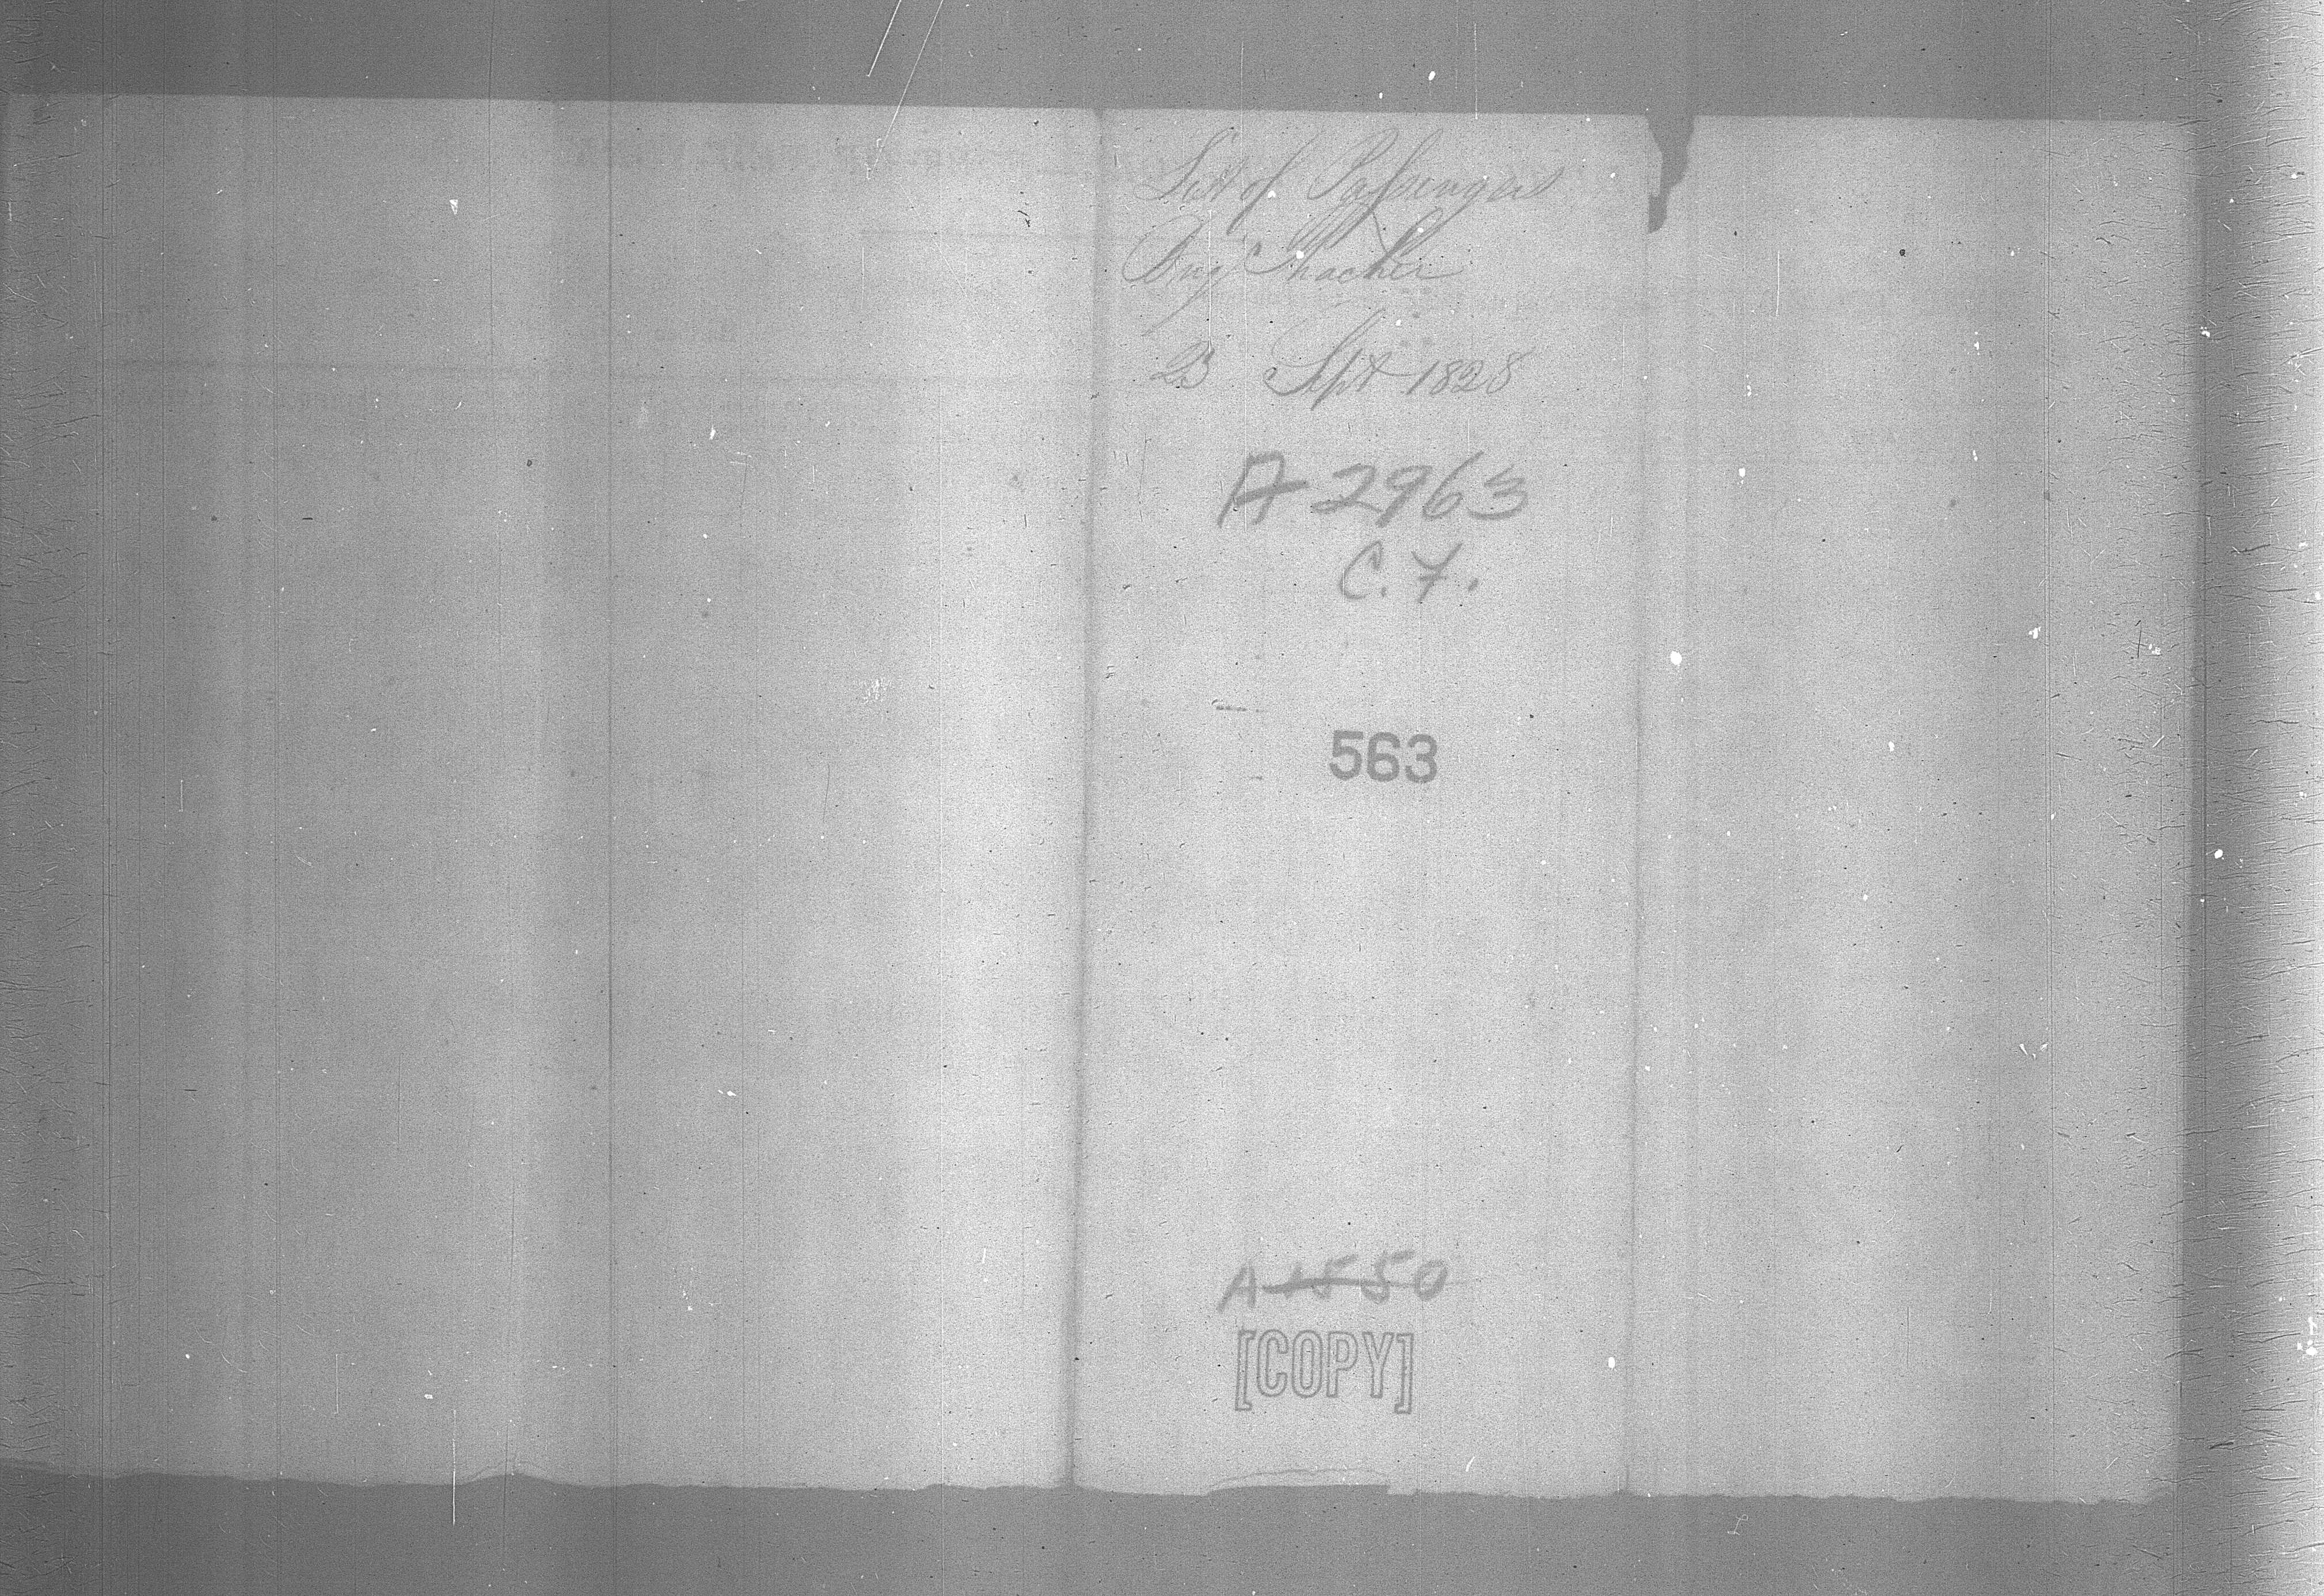 List of Passengers
Brig Thacher
23 Sept 1828
A 2963
C. F.
563
A 1550
[COPY]